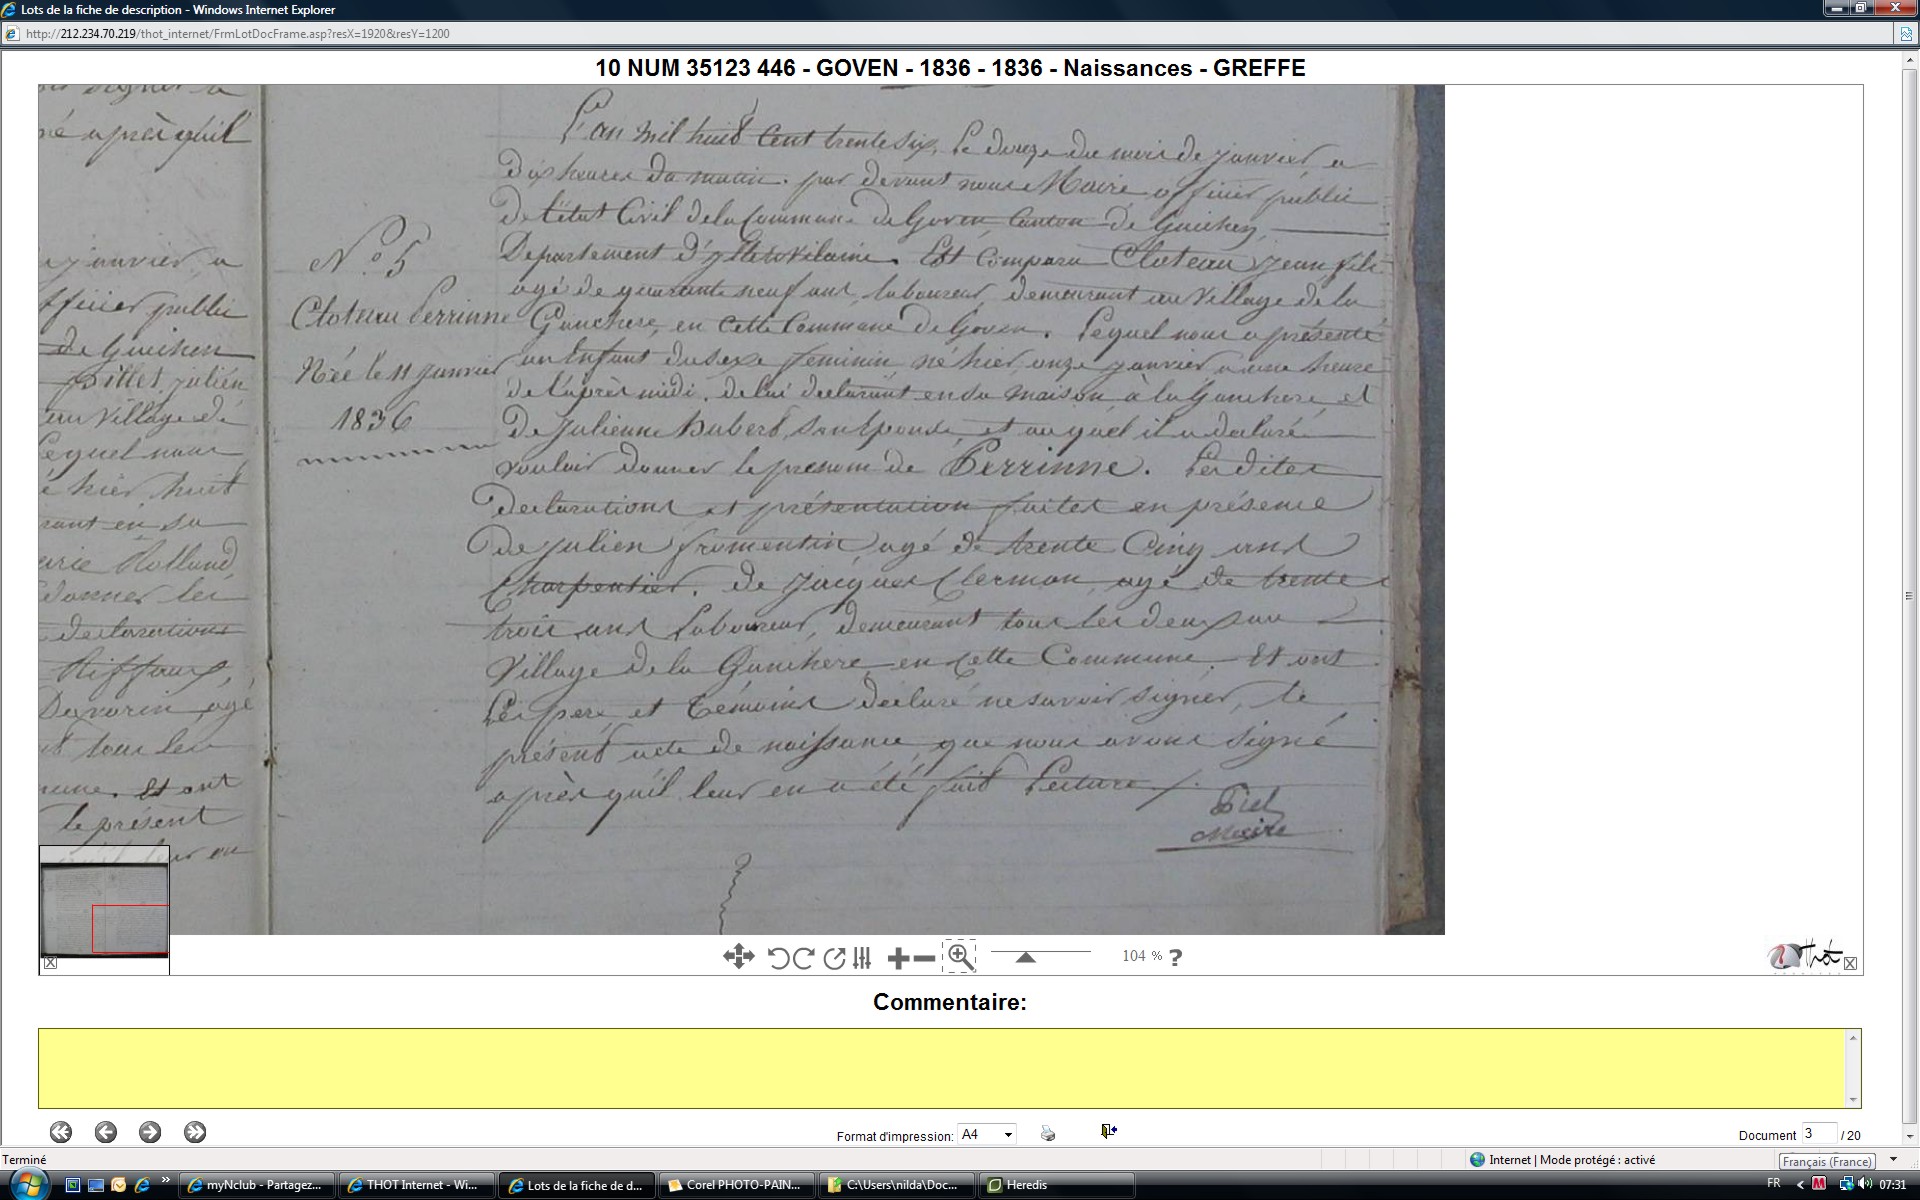 Lots de la fiche de description - Windows Internet Explorer
http://212.234.70.219/thot_internet/FrmLotDocFrame.asp?resX=1920&resY=1200
10 NUM 35123 446 - GOVEN - 1836 - 1836 - Naissances - GREFFE
né après qu'il
janvier a
officier public
de Guichen
Pillet julien
au Village de
Lequel nous
hier huit
rant en sa
arie Rolland
donner les
declarations
Riffaux,
agé
tous les
Et ont
le présent
N.o 5
Cloteau Perrinne
Née le 11 janvier
1836
L'an mil huit Cent trente six, Le douze du mois de janvier, a
dix heures du matin. par devant nous Maire officier public
de l'état Civil de la Commune de Goven Canton de Guichen,
Departement d'jlle et vilaine. Est Comparu Cloteau jean,
agé de quarante neuf ans, laboureur, demeurant au village de la
en cette Commune de Goven. Lequel nous a présenté
un Enfant du sexe feminin né hier, onze janvier a une heure
de l'après midi. de lui declarant en sa maison à la et
de Julienne Hubert, son Epouse et auquel il a declaré
vouloir donner le prenom de Perrinne. Les dites
declarations et présentation faites en présence
de Julien fromentin, agé de trente Cinq ans
Charpentier. de Jacques Clermon, agé de trente
trois ans laboureur, demeurant tous les deux au
Village de la en cette Commune. Et ont
Les pere et témoins declaré ne savoir signer, le
présent acte de naissance que nous avons signé
après qu'il leur en a été fait Lecture ./.
Piel
Maire
104 % ?
Thot
Commentaire:
Format d'impression: A4
Document 3 / 20
Terminé
Internet | Mode protégé : activé
Français (France)
myNclub - Partagez...
THOT Internet - Wi...
Lots de la fiche de d...
Corel PHOTO-PAIN...
C:\Users\nilda\Doc...
Heredis
FR
07:31